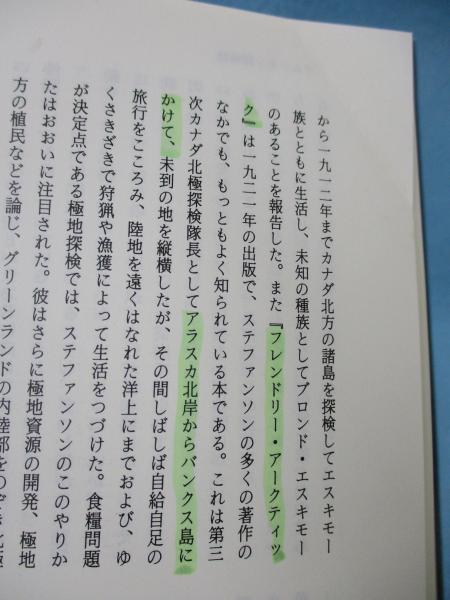 から一九一二年までカナダ北方の諸島を探検してエスキモー
族とともに生活し、未知の種族としてブロンド・エスキモー
のあることを報告した。また『フレンドリー・アークティッ
ク』は一九二一年の出版で、ステファンソンの多くの著作の
なかでも、もっともよく知られている本である。これは第三
次カナダ北極探検隊長としてアラスカ北岸からバンクス島に
かけて、未到の地を縦横したが、その間しばしば自給自足の
旅行をこころみ、陸地を遠くはなれた洋上にまでおよび、ゆ
くさきざきで狩猟や漁獲によって生活をつづけた。食糧問題
が決定点である極地探検では、ステファンソンのこのやりか
たはおおいに注目された。彼はさらに極地資源の開発、極地
方の植民などを論じ、グリーンランドの内陸部を